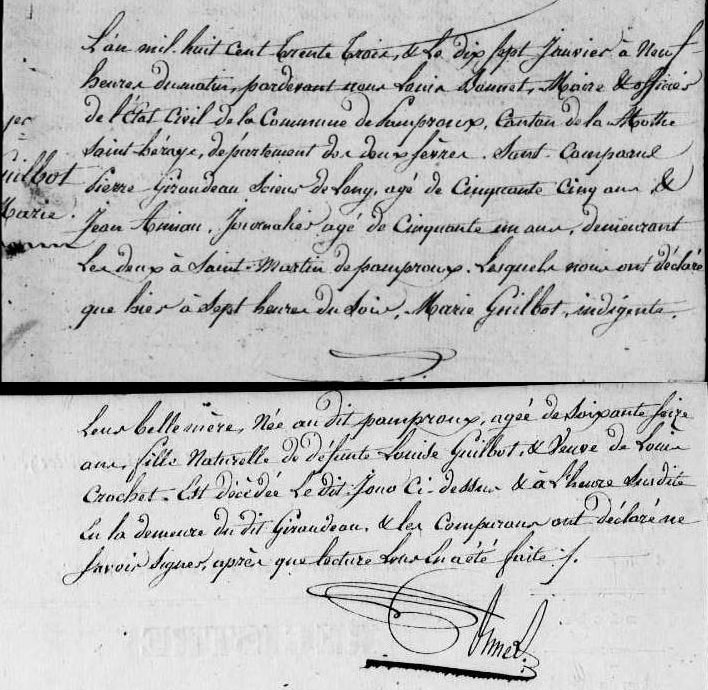 L'an mil huit cent trente trois, & le dix sept Janvier à neuf
heures du matin, pardevant nous Louis Bonnet, Maire & officier
de l'État Civil de la Commune de Pamproux, Canton de la Mothe
Saint héraye, département des deux sèvres. Sont Comparus
Pierre Giraudeau Scieur de Long, agé de Cinquante Cinq ans, &
Guilbot
Jean Journalier agé de Cinquante un ans, demeurant
Marie
Les deux à Saint-Martin de pamproux. Lesquels nous ont déclaré
que hier à Sept heures du Soir, Marie Guilbot, indigente,
Leur bellemère, Née au dit pamproux, agée de Soixante Seize
ans, fille Naturelle de défunte Louise Guilbot, & Veuve de Louis
Crochet. Est décédée Le dit Jour Ci-dessus & à L'heure Susdite
En la demeure du dit Giraudeau, & les Comparans ont déclaré ne
Savoir Signer, après que lecture Leur En a été faite ./.
Bonnet